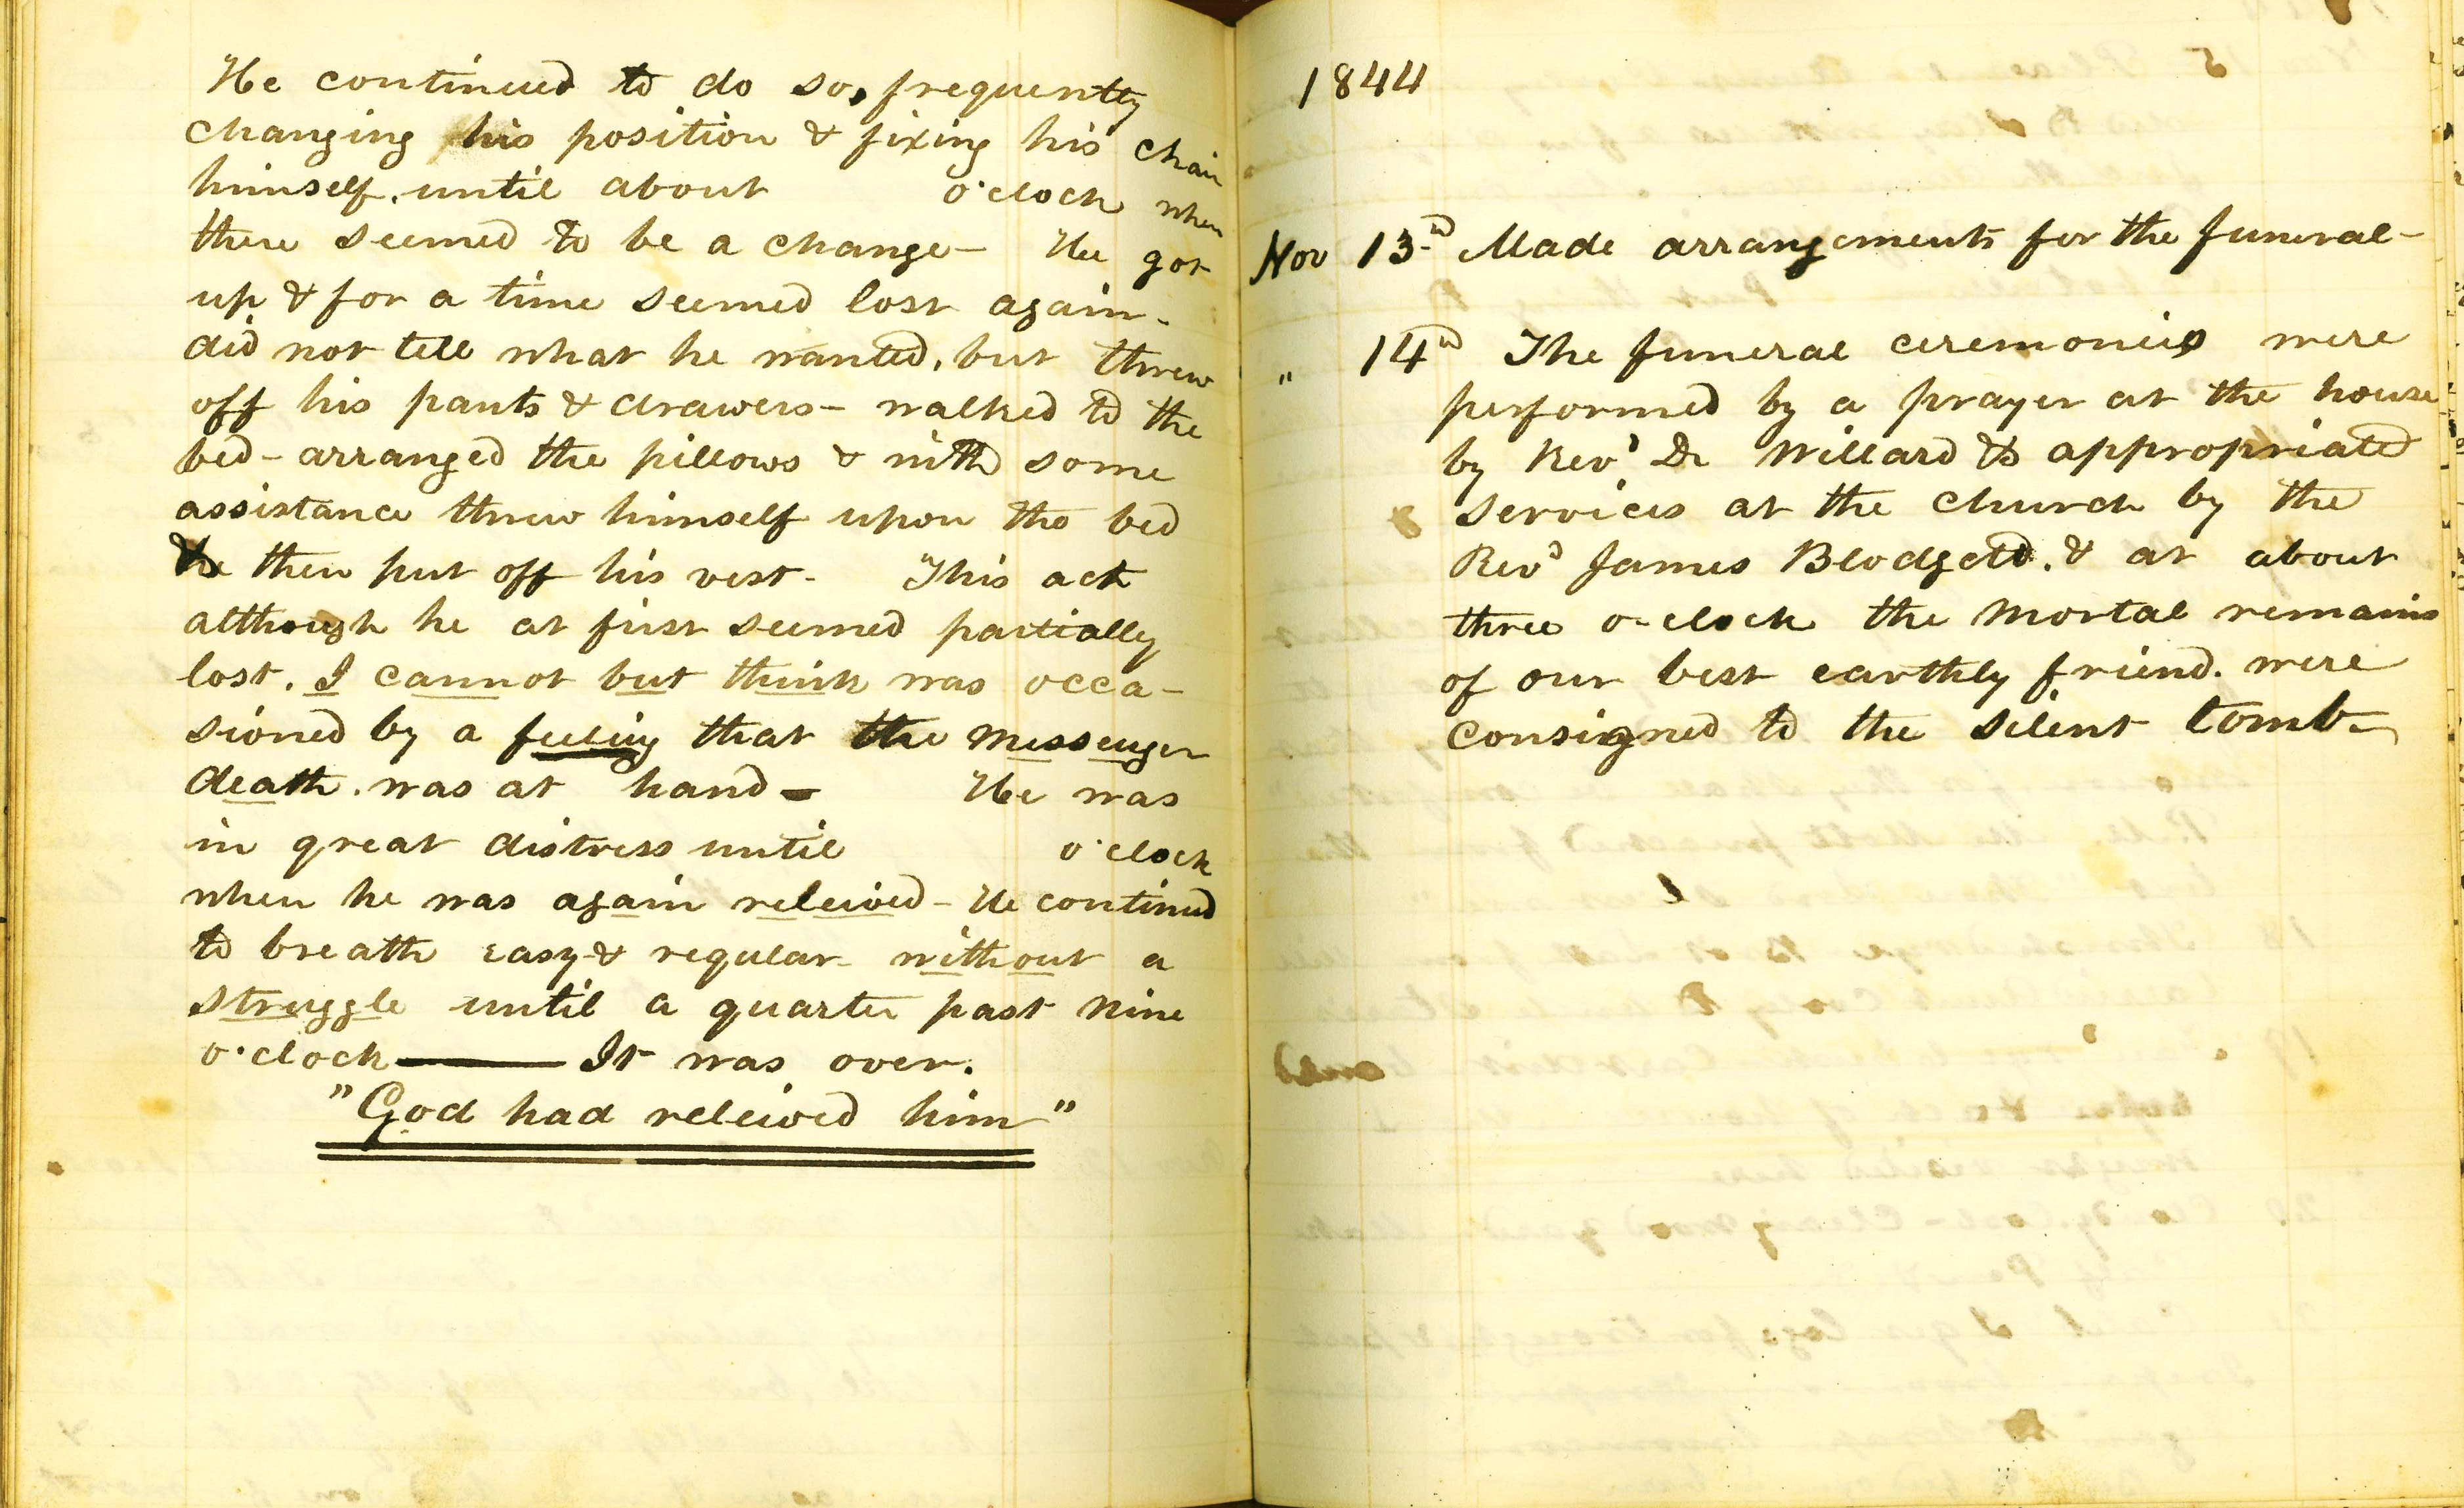 He continued to do so, frequently
changing his position & fixing his chair
himself. until about o'clock when
there seemed to be a change - He got
up & for a time seemed lost again -
did not tell what he wanted, but threw
off his pants & drawers - walked to the
bed - arranged the pillows & with some
assistance threw himself upon the bed
he then put off his vest - This act
although he at first seemed partially
lost. I cannot but think was occa-
sioned by a feeling that the messenger
death. was at hand - He was
in great distress until o'clock
when he was again releived - He continued
to breath easy & regular - without a
struggle until a quarter past nine
o'clock —— It was over.
"God had releived him"
1844
Nov 13d Made arrangements for the funeral -
" 14d The funeral ceremonies were
performed by a prayer at the house
by Revd Dr Willard & appropriated
services at the church by the
Revd James Blodgett. & at about
three o-clock the mortal remains
of our best earthly friend. were
consigned to the silent tomb -